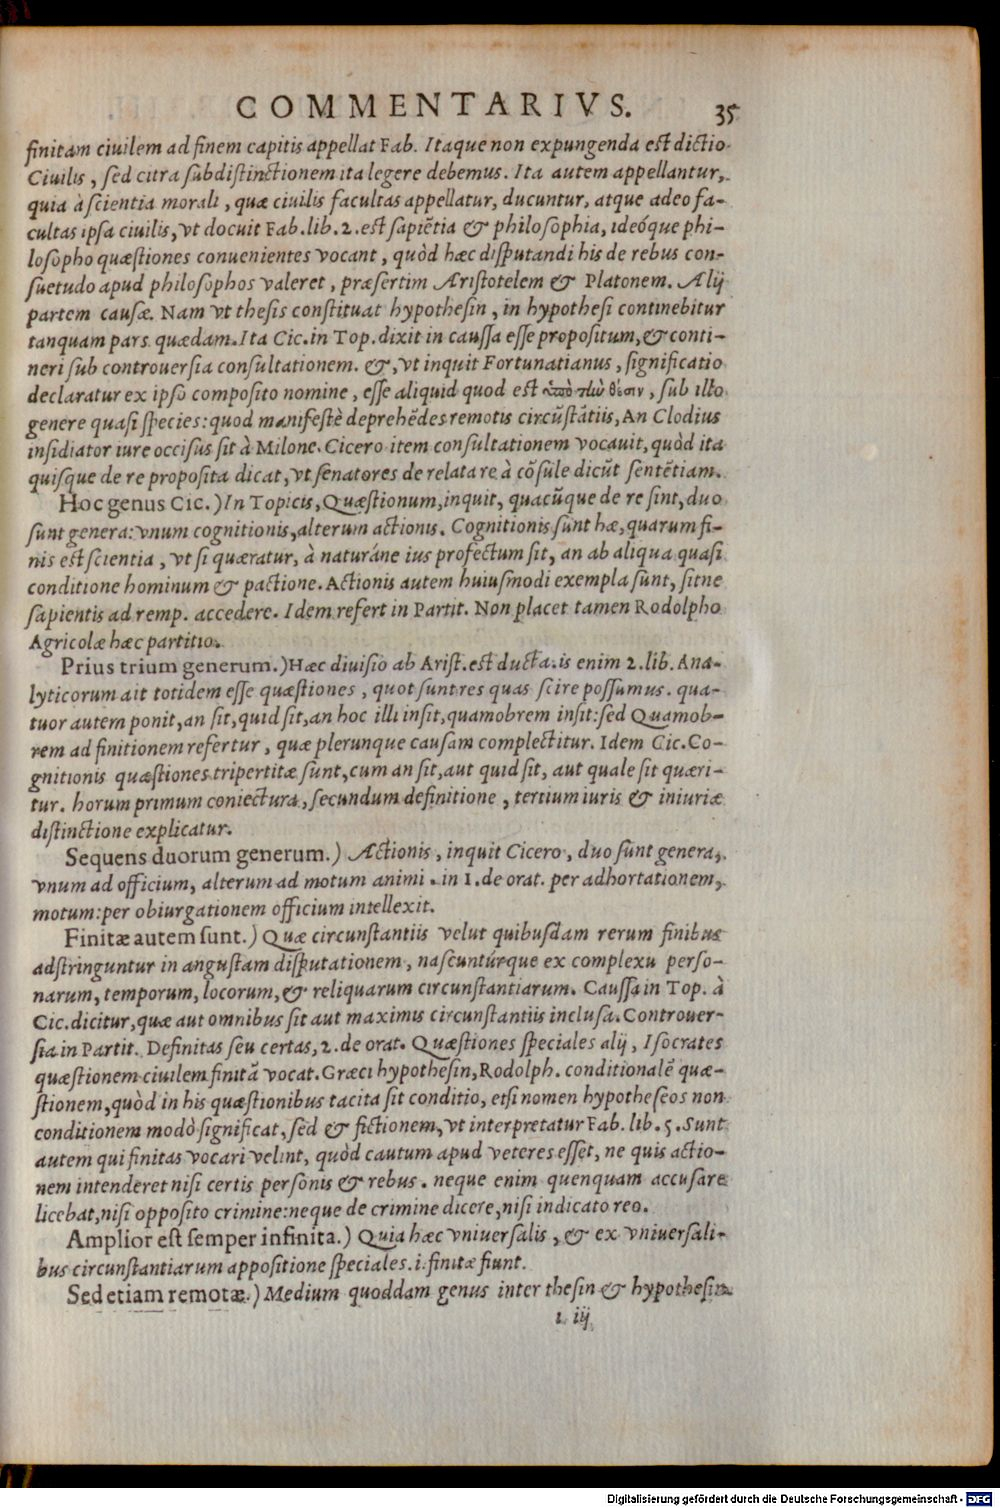 COMMENTARIVS. 35
finitam ciuilem ad finem capitis appellat Fab. Itaque non expungenda est dictio
Ciuilis, sed citra subdistinctionem ita legere debemus. Ita autem appellantur,
quia à scientia morali, quæ ciuilis facultas appellatur, ducuntur, atque adeo fa-
cultas ipsa ciuilis, vt docuit Fab. lib. 2. est sapiẽtia & philosophia, ideóque phi-
losopho quæstiones conuenientes vocant, quòd hæc disputandi his de rebus con-
suetudo apud philosophos valeret, præsertim Aristotelem & Platonem. Alij
partem causæ. Nam vt thesis constituat hypothesin, in hypothesi continebitur
tanquam pars quædam. Ita Cic. in Top. dixit in caussa esse propositum, & conti-
neri sub controuersia consultationem. &, vt inquit Fortunatianus, significatio
declaratur ex ipso composito nomine, esse aliquid quod est ὑπὸ τὴν θέσιν, sub illo
genere quasi species: quod manifestè deprehẽdes remotis circũstãtiis, An Clodius
insidiator iure occisus sit à Milone. Cicero item consultationem vocauit, quòd ita
quisque de re proposita dicat, vt senatores de relata re à cõsule dicũt sentẽtiam.
Hoc genus Cic.) In Topicis, Quæstionum, inquit, quacũque de re sint, duo
sunt genera: vnum cognitionis, alterum actionis. Cognitionis sunt hæ, quarum fi-
nis est scientia, vt si quæratur, à naturáne ius profectum sit, an ab aliqua quasi
conditione hominum & pactione. Actionis autem huiusmodi exempla sunt, sitne
sapientis ad remp. accedere. Idem refert in Partit. Non placet tamen Rodolpho
Agricolæ hæc partitio.
Prius trium generum.) Hæc diuisio ab Arist. est ducta. is enim 2. lib. Ana-
lyticorum ait totidem esse quæstiones, quot sunt res quas scire possumus. qua-
tuor autem ponit, an sit, quid sit, an hoc illi insit, quamobrem insit: sed Quamob-
rem ad finitionem refertur, quæ plerunque causam complectitur. Idem Cic. Co-
gnitionis quæstiones tripertitæ sunt, cum an sit, aut quid sit, aut quale sit quæri-
tur. horum primum coniectura, secundum definitione, tertium iuris & iniuriæ
distinctione explicatur.
Sequens duorum generum.) Actionis, inquit Cicero, duo sunt genera,
vnum ad officium, alterum ad motum animi. in 1. de orat. per adhortationem,
motum: per obiurgationem officium intellexit.
Finitæ autem sunt.) Quæ circunstantiis velut quibusdam rerum finibus
adstringuntur in angustam disputationem, nascuntúrque ex complexu perso-
narum, temporum, locorum, & reliquarum circunstantiarum. Caussa in Top. à
Cic. dicitur, quæ aut omnibus sit aut maximis circunstantiis inclusa. Controuer-
sia in Partit. Definitas seu certas, 2. de orat. Quæstiones speciales alij, Isocrates
quæstionem ciuilem finitã vocat. Græci hypothesin, Rodolph. conditionalẽ quæ-
stionem, quòd in his quæstionibus tacita sit conditio, etsi nomen hypotheseos non
conditionem modò significat, sed & fictionem, vt interpretatur Fab. lib. 5. Sunt
autem qui finitas vocari velint, quòd cautum apud veteres esset, ne quis actio-
nem intenderet nisi certis personis & rebus. neque enim quenquam accusare
licebat, nisi opposito crimine: neque de crimine dicere, nisi indicato reo.
Amplior est semper infinita.) Quia hæc vniuersalis, & ex vniuersali-
bus circunstantiarum appositione speciales. i. finitæ fiunt.
Sed etiam remotæ.) Medium quoddam genus inter thesin & hypothesin
i iij
Digitalisierung gefördert durch die Deutsche Forschungsgemeinschaft - DFG